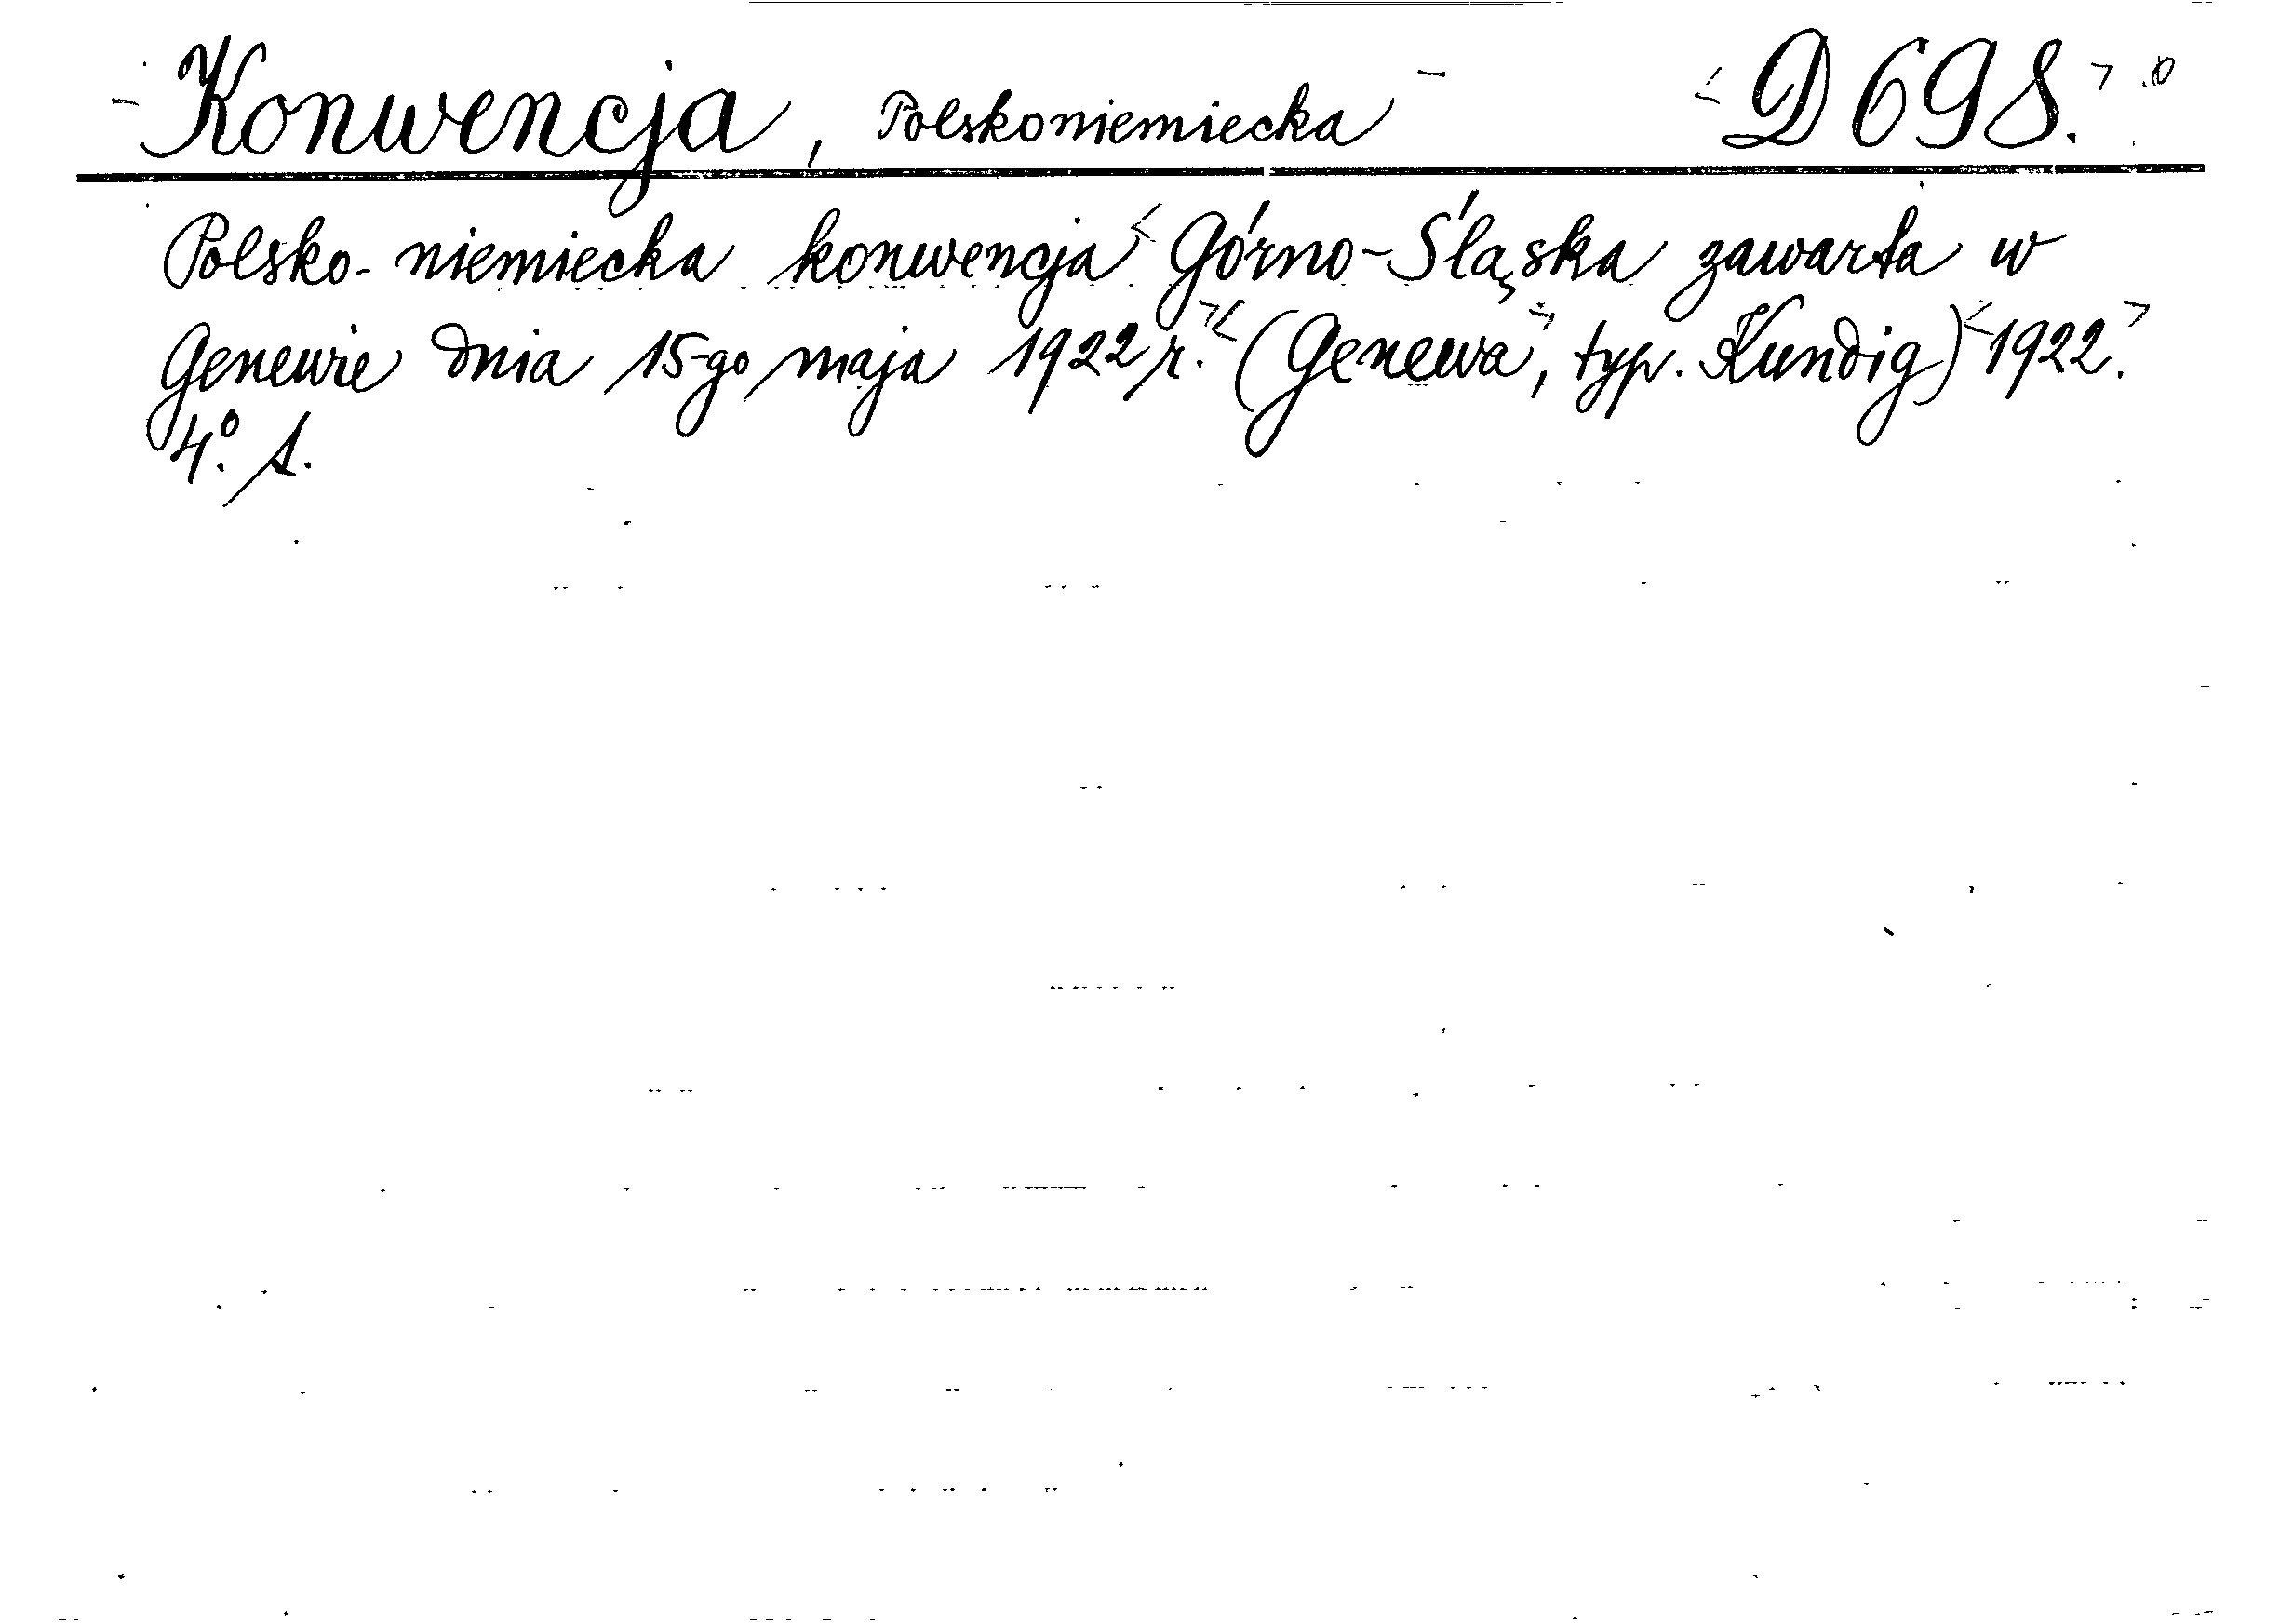 Konwencja, Polskoniemiecka D 698.
Polsko-niemiecka konwencja Górno-Śląska zawarta w
Genewie dnia 15-go maja 1922 r. (Genewa, typ. Kundig) 1922.
4º. s.